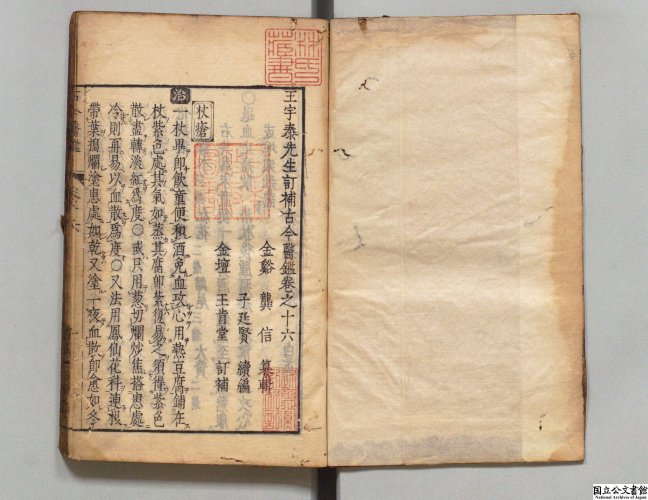 王宇泰先生訂補古今醫鑑卷之十六
金谿 龔信 纂輯
子廷賢 續編
金壇 王肯堂 訂補
杖瘡
治
一杖畢即飲童便和酒免血攻心用熱豆腐鋪在
杖紫色處其氣如蒸其腐即紫復易之須得紫色
散盡轉淡紅爲度〇或只用葱切爛炒焦搭患處
冷則再易以血散爲度〇又法用鳳仙花科連根
帶葉搗爛塗患處如乾又塗一夜血散即愈如冬
國立公文書館
National Archives of Japan